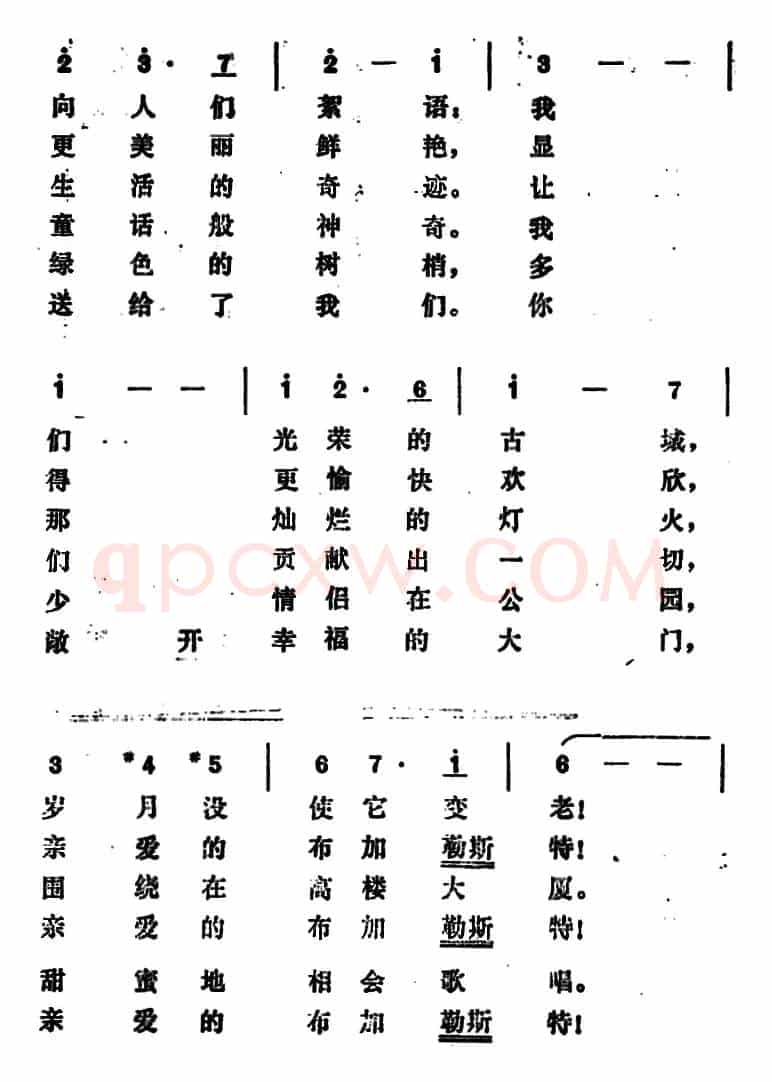 2̇ 3̇· 7 | 2̇ — 1̇ | 3 — — |
向 人 们 絮 语：我
更 美 丽 鲜 艳，显
生 活 的 奇 迹。让
童 话 般 神 奇。我
绿 色 的 树 梢，多
送 给 了 我 们。你
1̇ — — | 1̇ 2̇· 6 | 1̇ — 7 |
们 光 荣 的 古 域，
得 更 愉 快 欢 欣，
那 灿 烂 的 灯 火，
们 贡 献 出 一 切，
少 情 侣 在 公 园，
敞 开 幸 福 的 大 门，
qpcxw.COM
3 #4 #5 | 6 7· 1̇ | 6 — — |
岁 月 没 使 它 变 老！
亲 爱 的 布 加 勒斯 特！
围 绕 在 高 楼 大 厦。
亲 爱 的 布 加 勒斯 特！
甜 蜜 地 相 会 歌 唱。
亲 爱 的 布 加 勒斯 特！